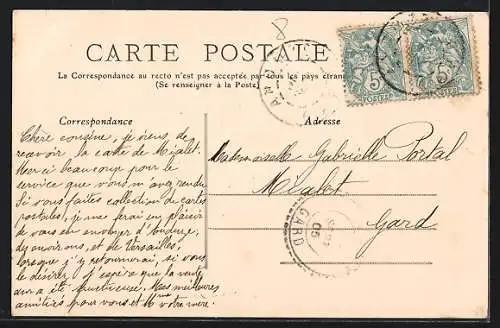 8
CARTE POSTALE
La Correspondance au recto n'est pas acceptée par tous les pays étran
(Se renseigner à la Poste)
5
POSTES
5
POSTES
Correspondance
Adresse
Chère cousine, je viens de
recevoir la carte de Mialet.
Merci beaucoup pour le
service que vous m'avez rendu
Si vous faites collection de cartes
postales, je me ferai un plaisir
de vous en envoyer d'Anduze,
des environs, et de Versailles,
lorsque j'y retournerai, si vous
le désirez. J'espère que la vente
a été fructueuse. Mes meilleures
amitiés pour vous et Mme votre mère.
Mademoiselle Gabrielle Portal
Mialet
Gard
GARD
05